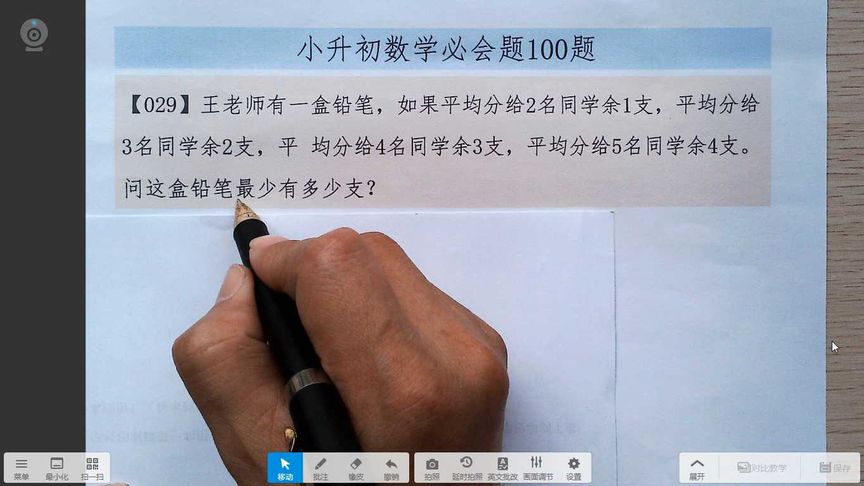 小升初数学必会题100题
【029】王老师有一盒铅笔，如果平均分给2名同学余1支，平均分给
3名同学余2支，平 均分给4名同学余3支，平均分给5名同学余4支。
问这盒铅笔最少有多少支？
菜单 最小化 扫一扫 移动 批注 橡皮 撤销 拍照 延时拍照 英文批改 画面调节 设置 展开 对比教学 保存